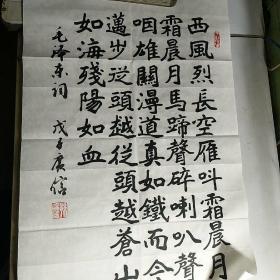 西風烈長空雁叫霜晨月
霜晨月馬蹄聲碎喇叭聲
咽雄關漫道真如鐵而今
邁步從頭越從頭越蒼山
如海殘陽如血
毛澤東詞 戊子 庚信